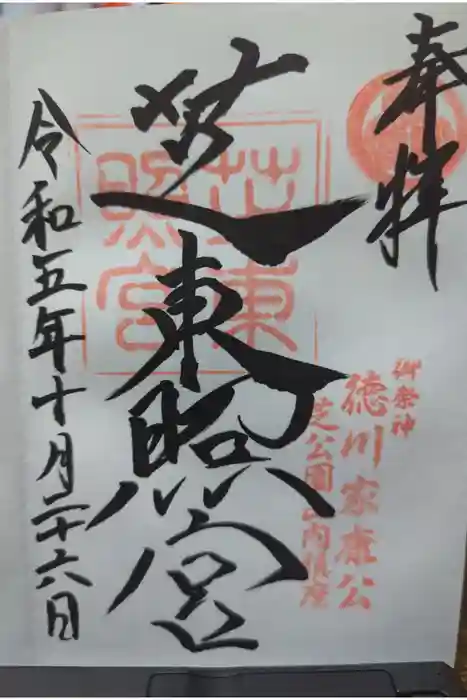 奉拝
御祭神
徳川家康公
芝公園内鎮座
芝東照宮
芝東
照宮
令和五年十月二十六日